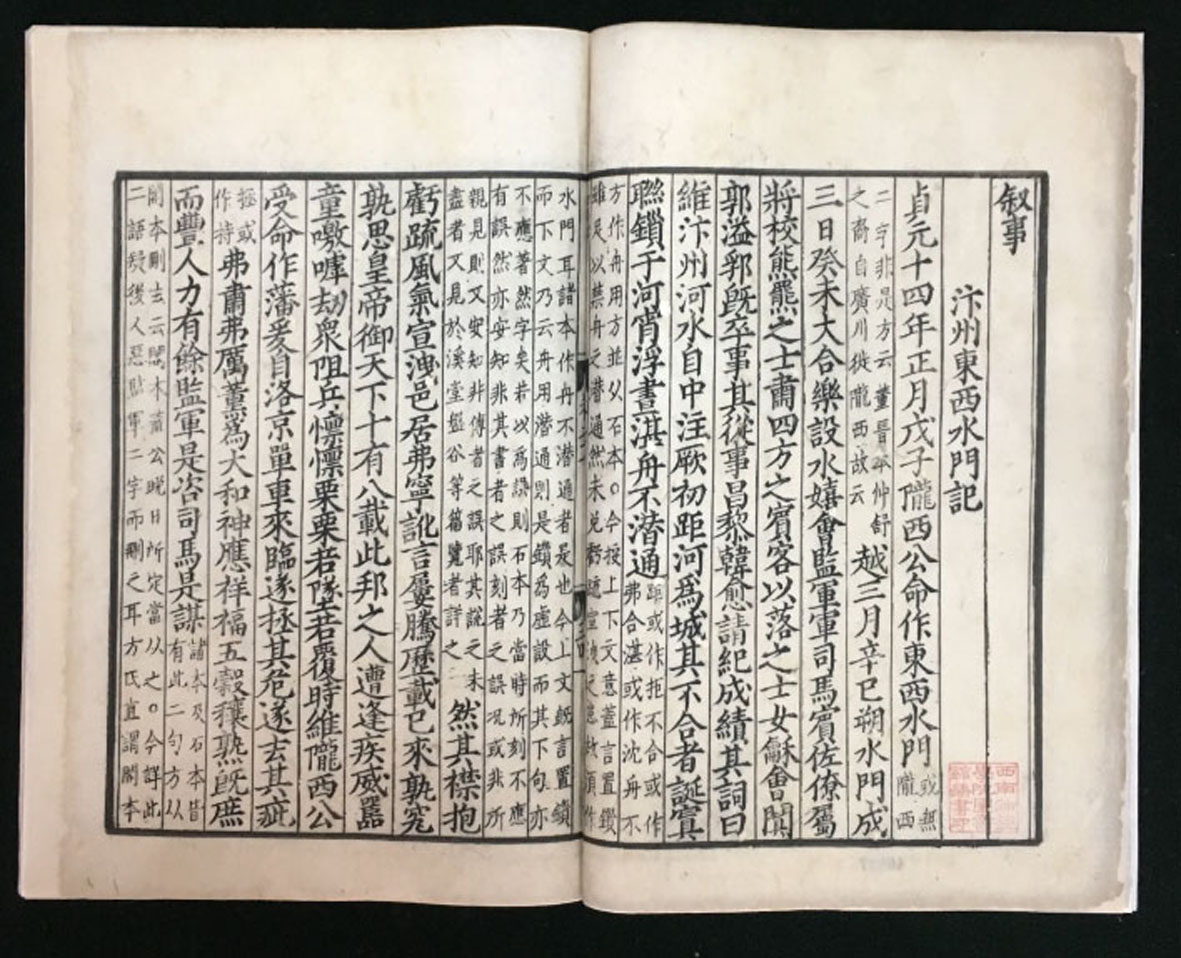 叙事
汴州東西水門記
貞元十四年正月戊子隴西公命作東西水門或無隴西
二字非是方云董晉本仲舒之裔自廣川徙隴西故云越三月辛巳朔水門成
三日癸未大合樂設水嬉會監軍軍司馬賓佐僚屬
將校熊羆之士肅四方之賓客以落之士女龢會闐
郭溢郛既卒事其從事昌黎韓愈請紀成績其詞曰
維汴州河水自中注厥初距河爲城其不合者誕寘
聮鎖于河宵浮晝湛舟不潜通距或作拒不合或作弗合湛或作沈舟不
方作舟用方並从石本○今按上下文意蓋言置鎖雖足以禁舟之潜通然未免虧疏宣洩之患故須作
水門耳諸本作舟不潜通者是也今上文既言置鎖而下文乃云舟用潜通則是鎖爲虛設而其下句亦
不應著然字矣若以爲誤則石本乃當時所刻不應有誤然亦安知非其書者之誤刻者之誤况或非所
親見則又安知非傳者之誤耶其說之未盡者又見於溪堂盤谷等篇覽者詳之然其襟抱
虧疏風氣宣洩邑居弗寧訛言屢騰歷載已來孰究
孰思皇帝御天下十有八載此邦之人遭逢疾威嚚
童噭嘑劫衆阻兵懍懍栗栗若墜若覆時維隴西公
受命作藩爰自洛京單車來臨遂拯其危遂去其疵
拯或作持弗肅弗厲薫爲大和神應祥福五穀穰熟既庶
而豐人力有餘監軍是咨司馬是謀諸本及石本皆有此二句方以
閣本刪去云閣本蕭公晚日所定當以之○今詳此二語疑後人惡監軍二字而刪之耳方氏直謂閣本